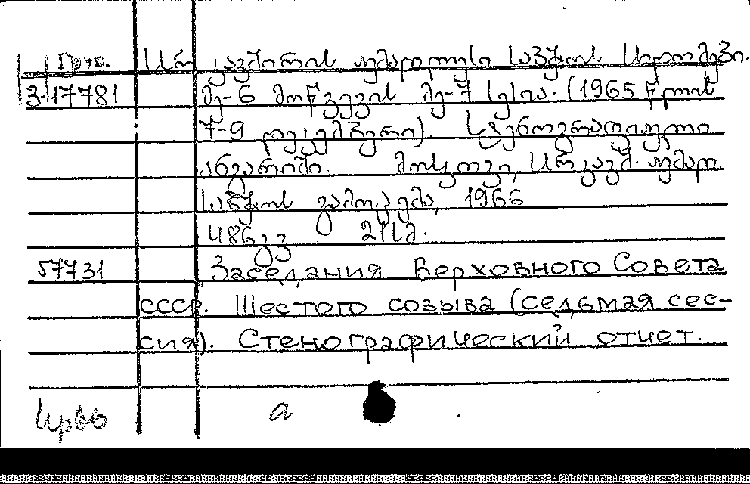 სსრ კავშირის უმაღლესი საბჭოს სხდომები.
3-17781 მე-6 მოწვევის მე-7 სესია. (1965 წლის
7-9 დეკემბერი). სტენოგრაფიული
ანგარიში. მოსკოვი, სსრ კავშ. უმაღლ.
საბჭოს გამოცემა, 1966
486 გვ 21 სმ.
57731 Заседания Верховного Совета
СССР. Шестого созыва (седьмая сес-
сия). Стенографический отчет.
а